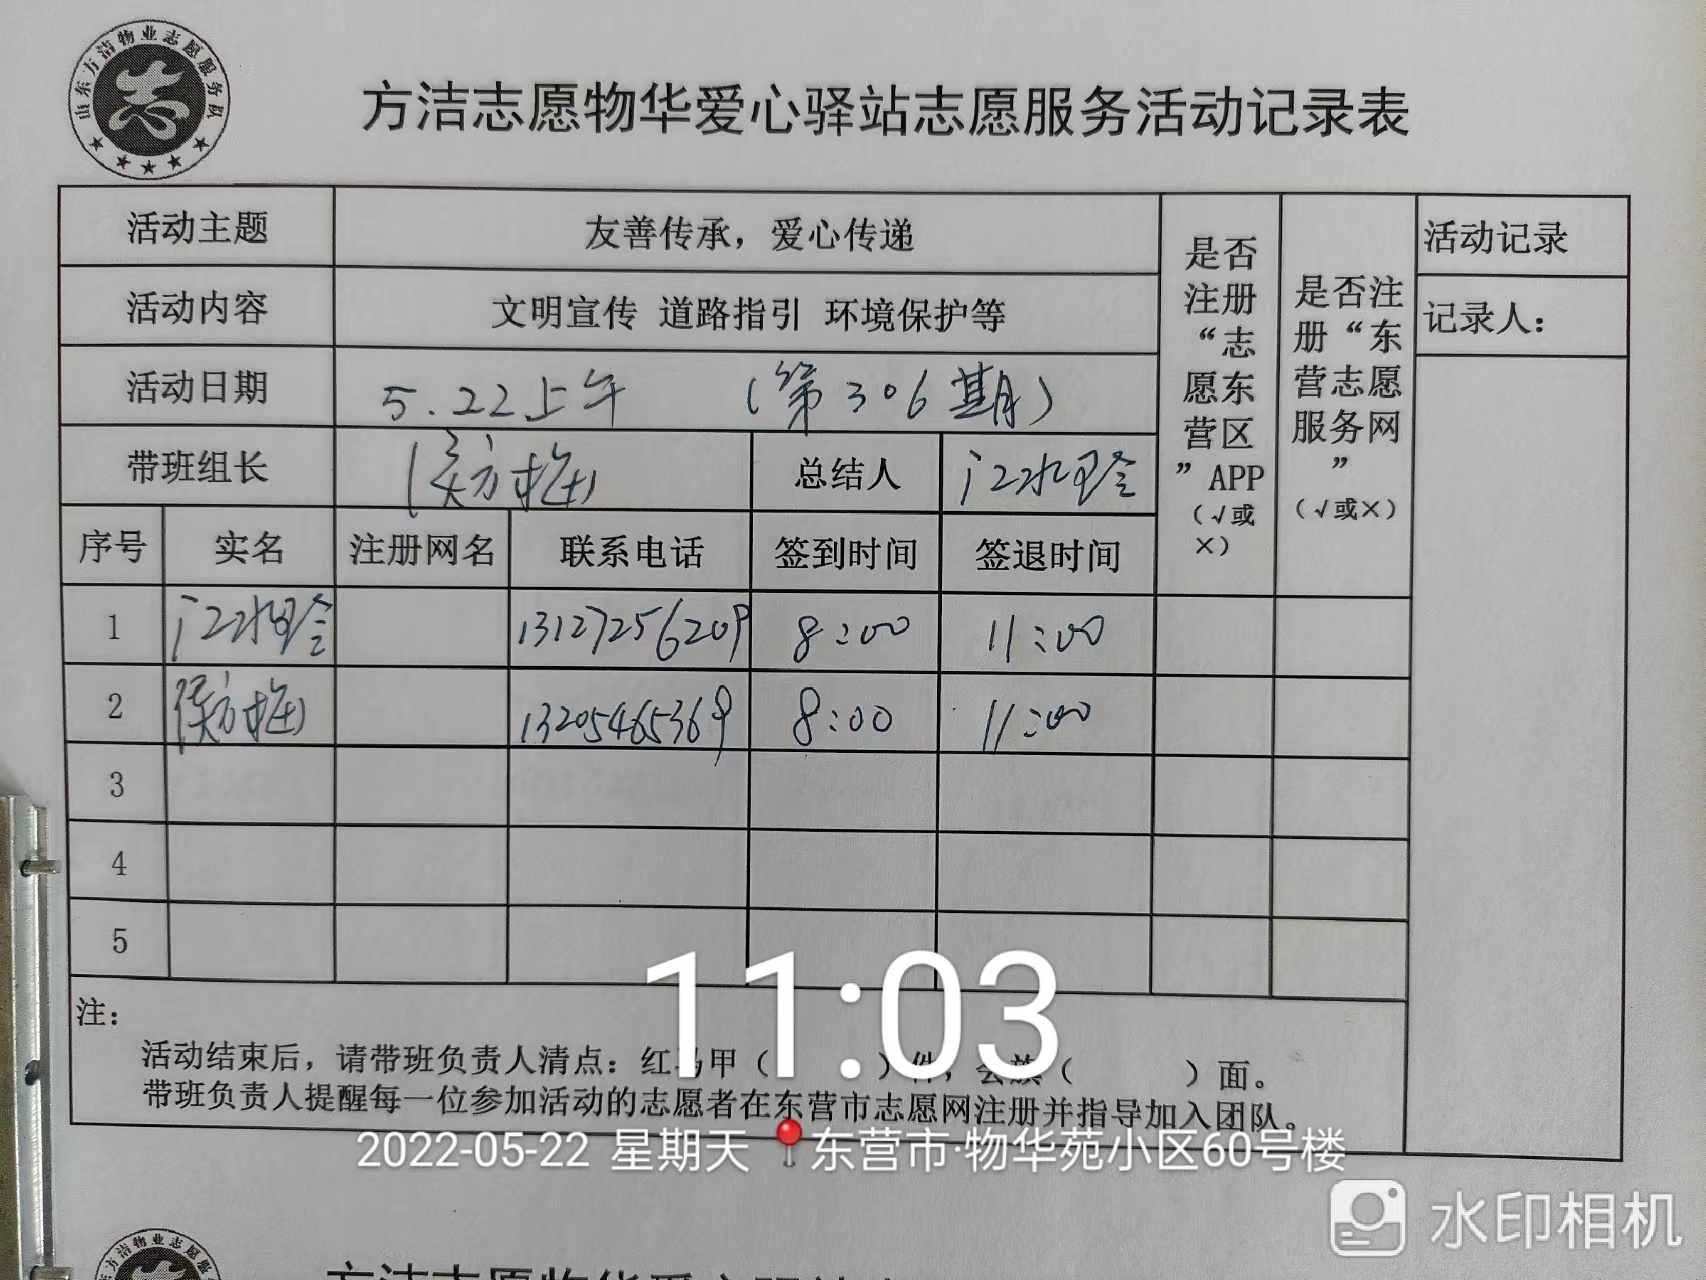 山东方洁物业志愿服务队
志
方洁志愿物华爱心驿站志愿服务活动记录表
活动主题 友善传承，爱心传递
活动内容 文明宣传 道路指引 环境保护等
活动日期 5.22上午 （第306期）
带班组长 侯方梅 总结人 江水玲
是否注册“志愿东营区”APP（√或×）
是否注册“东营志愿服务网”（√或×）
活动记录
记录人：
序号 实名 注册网名 联系电话 签到时间 签退时间
1 13127256209 8:00 11:00
2 侯方梅 13205465369 8:00 11:00
3
4
5
注：
活动结束后，请带班负责人清点：红马甲（ ）件，会旗（ ）面。
带班负责人提醒每一位参加活动的志愿者在东营市志愿网注册并指导加入团队。
11:03
2022-05-22 星期天 东营市·物华苑小区60号楼
水印相机
方洁物业志愿服